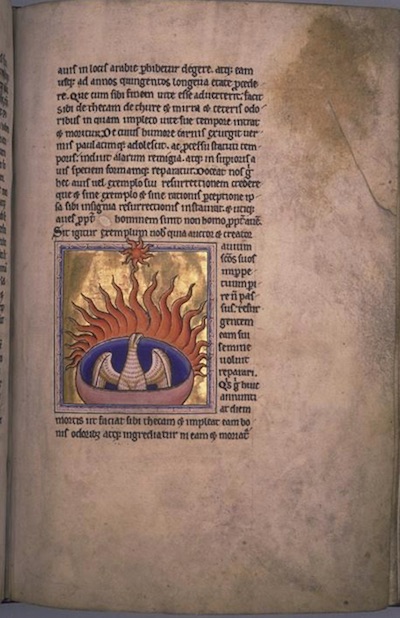 auis in locis arabie phibetur degere. atq; eam
usq; ad annos quingentos longeua etate pcede
re. Que cum sibi finem uite esse aduerterit. facit
sibi thecam de thure & mirra & ceteris odo
ribus in quam impleto uite sue tempore intrat
& moritur. De cuius humore carnis exurgit uer
mis paulatimq; adolescit. ac pcessu statuti tem
poris induit alarum remigia. atq; in superioris a
uis speciem formamq; reparatur. Doceat nos g
hec auis uel exemplo sui resurrectionem credere
que & sine exemplo & sine rationis pceptione ip
sa sibi insignia resurrectionis instaurat. & utiq;
aues ppt hominem sunt non homo ppt auē.
Sit igitur exemplum nob quia auctor & creator
auium
scōs suos
impper
tuum pi
re n pas
sus. resur
gentem
eam sui
semine
uoluit
reparari.
Qs g huic
annunti
at diem
mortis ut faciat sibi thecam & impleat eam bo
nis odorib; atq; ingrediatur in eam & moriat